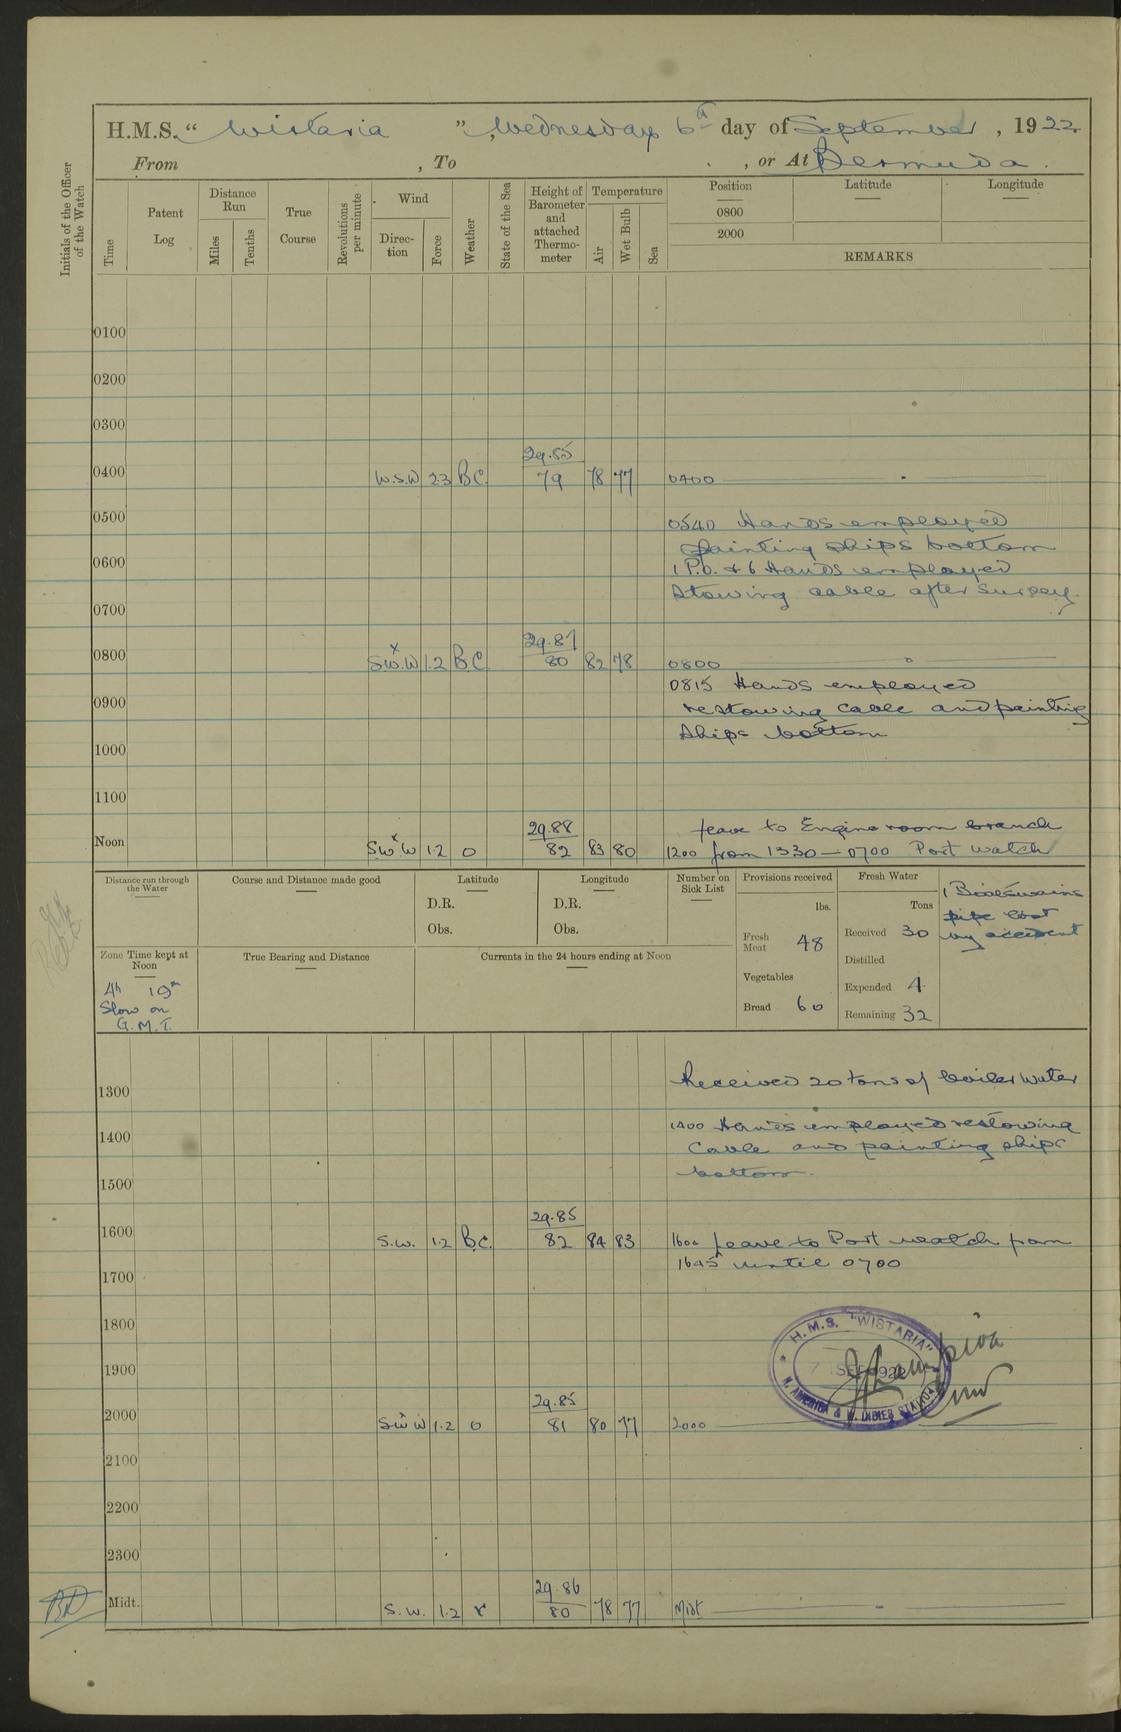 H.M.S. “ Wistaria ”, Wednesday 6th day of September, 1922
From , To , or At Bermuda.
Initials of the Officer of the Watch
Time
Patent Log
Distance Run
Miles
Tenths
True Course
Revolutions per minute
Wind
Direc-tion
Force
Weather
State of the Sea
Height of Barometer and attached Thermo-meter
Temperature
Air
Wet Bulb
Sea
Position Latitude Longitude
0800
2000
REMARKS
0100
0200
0300
29.85
0400 W.S.W 2.3 B.C. 79 78 77 0400
0500 0540 Hands employed
painting ships bottom
0600 1 P.O. & 6 Hands employed
stowing cable after survey.
0700
29.87
0800 SWxW 1.2 B.C. 80 82 78 0800
0815 Hands employed
0900 restowing cable and painting
ships bottom
1000
1100
29.88 Leave to Engine room branch
Noon SWxW 1.2 0 82 83 80 1200 from 1330 — 0700 Port watch
Distance run through the Water
Course and Distance made good
Latitude
D.R.
Obs.
Longitude
D.R.
Obs.
Number on Sick List
Provisions received
lbs.
Fresh Meat 48
Vegetables
Bread 60
Fresh Water
Tons
Received 30
Distilled
Expended 4
Remaining 32
1 Boatswains
pipe lost
by accident
Zone Time kept at Noon
4h 19m
Slow on
G.M.T.
True Bearing and Distance
Currents in the 24 hours ending at Noon
Received 20 tons of boiler water
1300
1400 1400 Hands employed restowing
cable and painting ships
bottom.
1500
29.85
1600 S.W. 1.2 B.C. 82 84 83 1600 Leave to Port watch from
1645 until 0700
1700
1800
H.M.S. "WISTARIA"
7 SEP 1922
N. AMERICA & W. INDIES STATION
1900
29.85
2000 SWxW 1.2 0 81 80 77 2000
2100
2200
2300
29.86
Midt. S.W. 1.2 r 80 78 77 Midt